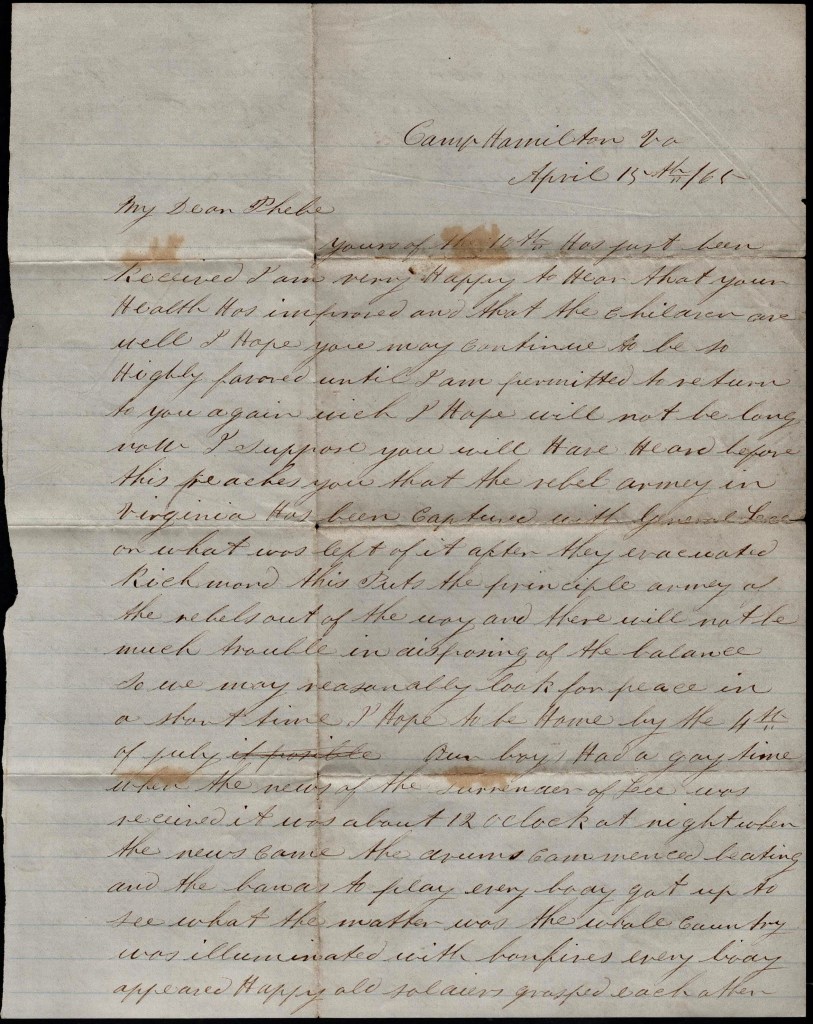 Camp Hamilton Va
April 15th/65
My Dear Phebe
yours of the 10th Has just been
Received I am very Happy to Hear that your
Health Has improved and that the children are
well I Hope you may continue to be so
Highly favored until I am permitted to return
to you again wich I Hope will not be long
now I suppose you will Have Heard before
this reaches you that the rebel armey in
Virginia Has been Captured with General Lee
or what was left of it after they evacuated
Richmond this Puts the principle armey of
the rebels out of the way and there will not be
much trouble in disposing of the balance
So we may reasonably look for peace in
a short time I Hope to be Home by the 4th
of july it posible Our boys Had a gay time
when the news of the surrender of Lee was
received it was about 12 oclock at night when
the news came the drums commenced beating
and the bands to play every body got up to
see what the matter was the whole country
was illuminated with bonfires every body
appeared Happy old soldiers grasped each other